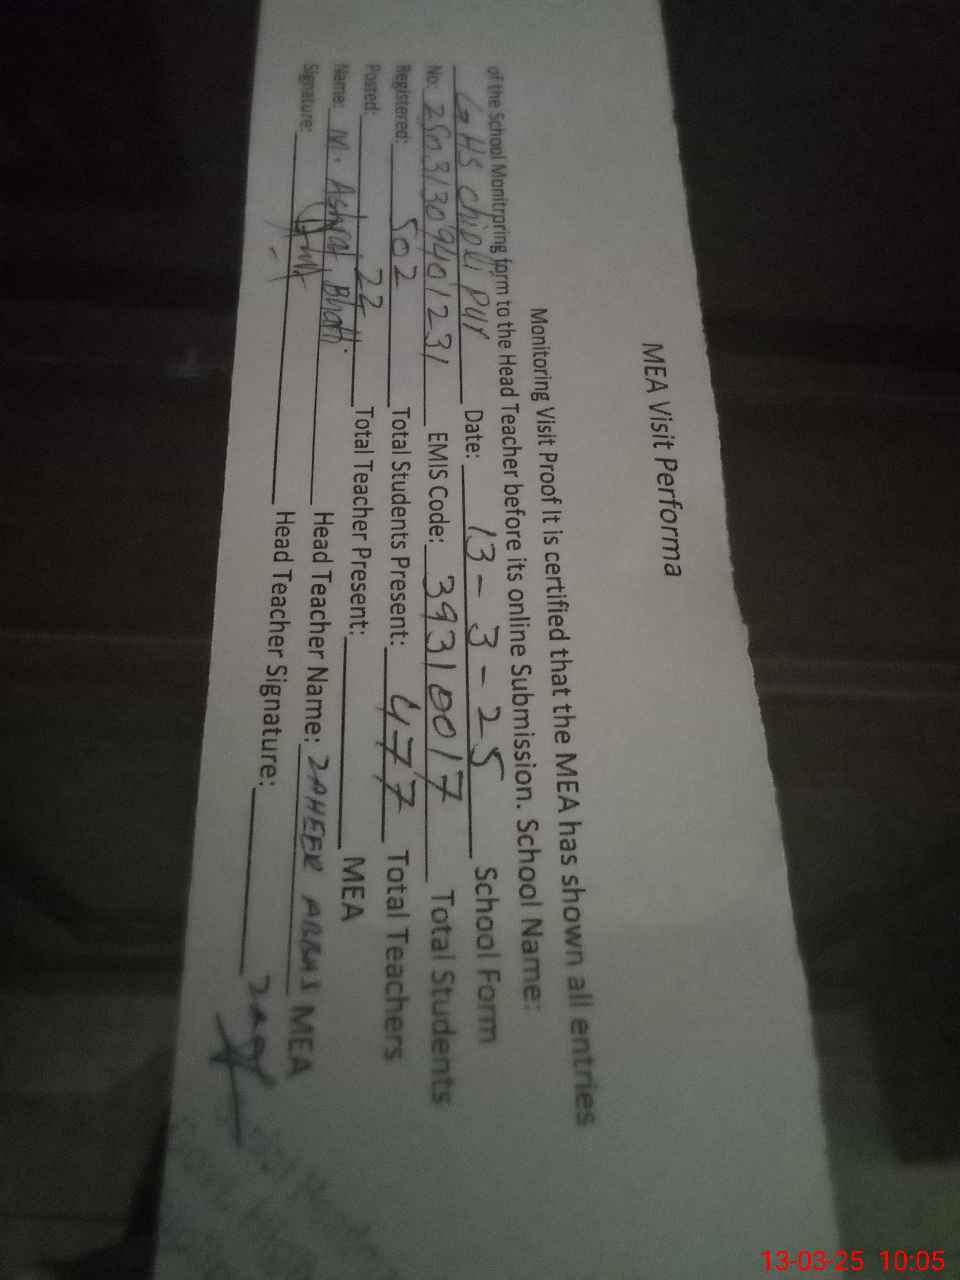 MEA Visit Performa
Monitoring Visit Proof It is certified that the MEA has shown all entries
of the School Monitrpring form to the Head Teacher before its online Submission. School Name:
GHS chipli pur Date: 13-3-25 School Form
No: 25031309401231 EMIS Code: 39310017 Total Students
Registered: 502 Total Students Present: 477 Total Teachers
Posted: 22 Total Teacher Present: MEA
Name: M. Ashraf Bhatti Head Teacher Name: ZAHEER ABBAS MEA
Signature: Head Teacher Signature:
13-03-25 10:05